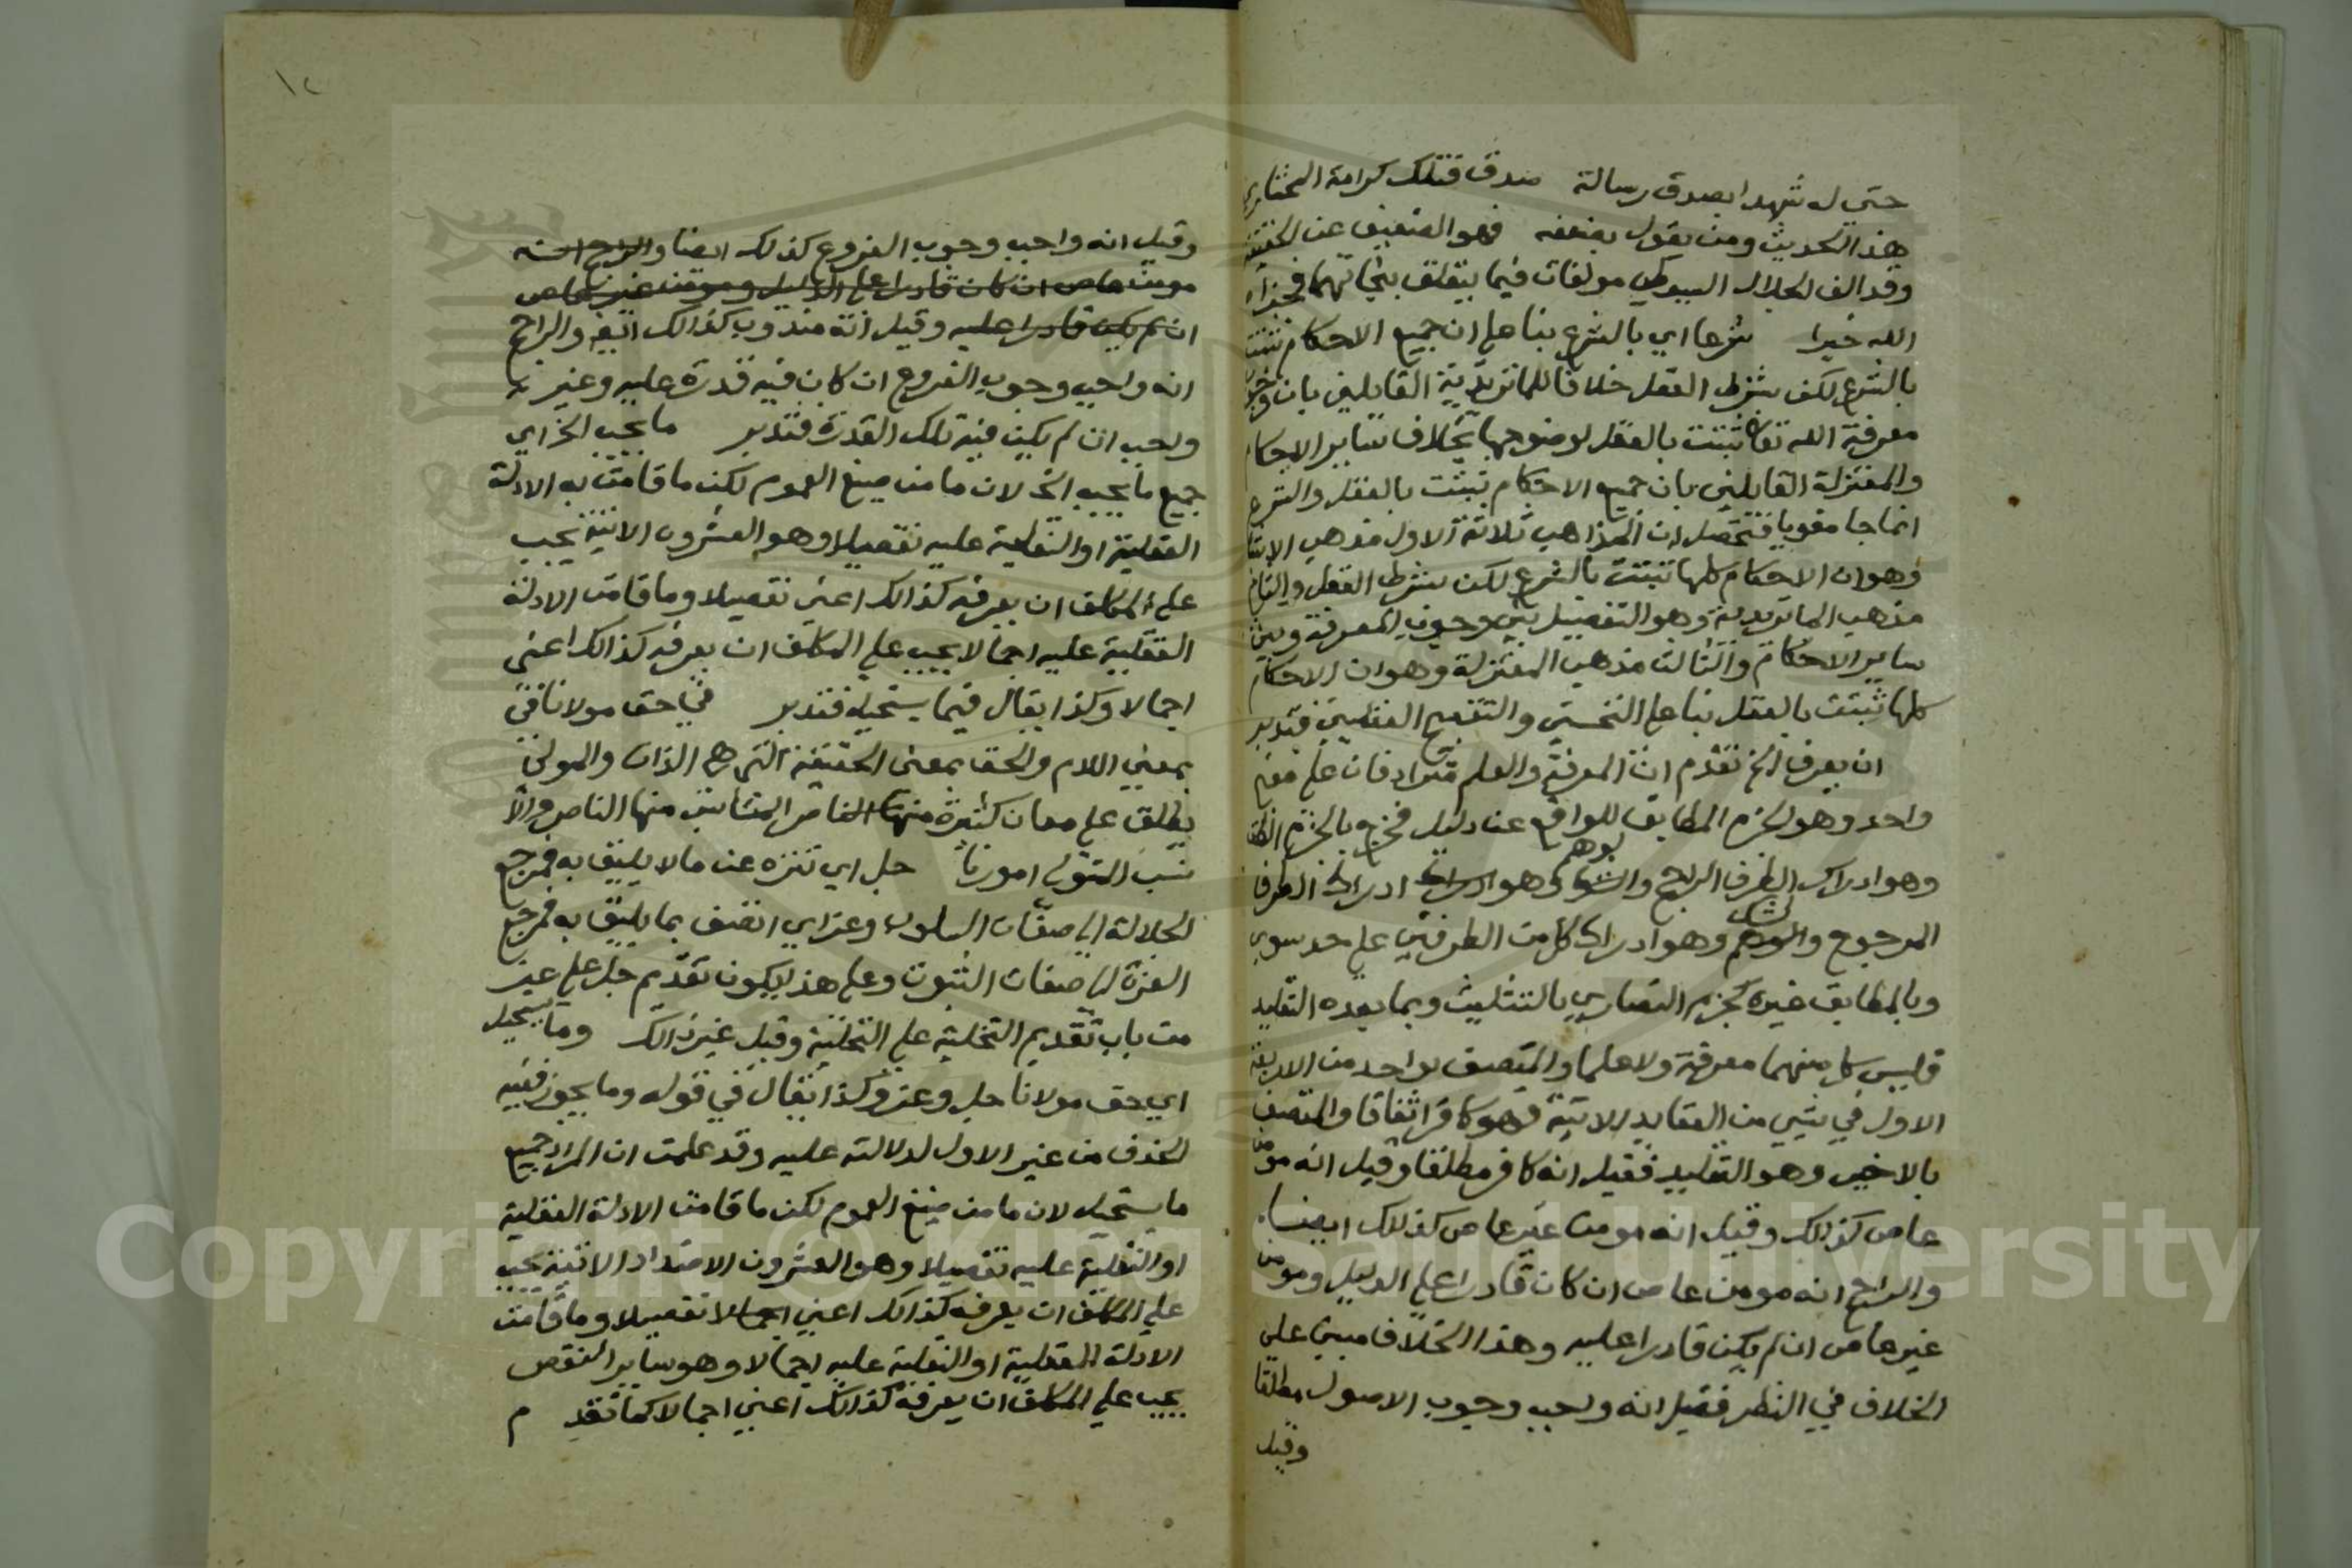 حتي له شهدا بصدق رسالة صدق فتلك كرامة المختار
هذا الحديث ومن يقول بضعفه فهو الضعيف عن الحقيقة
وقد الف الجلال السيوطي مولفات فيما يتعلق بنجاتهما فجزاه
الله خيرا شرعا اي بالشرع بنا علي ان جميع الاحكام تثبت
بالشرع لكن بشرط العقل خلافا للماتريدية القايلين بان وجوب
معرفة الله تعالي ثبتت بالعقل لوضوحها بخلاف ساير الاحكام
والمعتزلة القايلين بان جميع الاحكام تثبت بالعقل والشرع
انما جا مقويا فتحصل ان المذاهب ثلاثة الاول مذهب الاشا
وهو ان الاحكام كلها تثبتت بالشرع لكن بشرط العقل والثاني
مذهب الماتريدية وهو التفصيل بين وجوب المعرفة وبين
ساير الاحكام والثالث مذهب المعتزلة وهو ان الاحكام
كلها ثبتت بالعقل بنا علي التحسين والتقبيح العقليين فتدبر
ان يعرف الخ تقدم ان المعرفة والعلم مترادفان علي معني
واحد وهو الجزم المطابق للواقع عن دليل فخرج بالجزم الظن
وهو ادراك الطرف الراجح والشك لوهم وهو ادراك ادراك الطرف
المرجوح والوهم لشك وهو ادراك كل من الطرفين علي حد سوي
وبالمطابق غيره كجزم النصاري بالتثليث وبما بعده التقليد
فليس كل منهما معرفة ولا علما والمتصف بواحد من الاربعة
الاول في شي من العقايد الاتية فهو كافر اتفاقا والمتصف
بالاخير وهو التقليد فقيل انه كافر مطلقا وقيل انه مومن
عاص كذلك وقيل انه مومن غير عاص كذلك ايضا
والراجح انه مومن عاص ان كان قادرا علي الدليل ومومن
غير عاص ان لم يكن قادرا عليه وهذا الخلاف مبني علي
الخلاف في النظر فقيل انه واجب وجوب الاصول مطلقا
وقيل
١٢
وقيل انه واجب وجوب الفروع كذلك ايضا والراجح انه
مومن عاص ان كان قادرا علي الدليل ومومن غير عاص
ان لم يكن قادرا عليه وقيل انه مندوب كذالك ايض والراجح
انه واجب وجوب الفروع ان كان فيه قدرة عليه وغير
واجب ان لم يكن فيه تلك القدرة فتدبر ما يجب الخ اي
جميع ما يجب الخ لان ما من صيغ العموم لكن ما قامت به الادلة
العقلية او النقلية عليه تفصيلا وهو العشرون الاتية يجب
علي المكلف ان يعرفه كذالك اعني تفصيلا وما قامت الادلة
العقلية عليه اجمالا يجب علي المكلف ان يعرفه كذالك اعني
اجمالا وكذا يقال فيما يستحيل فتدبر في حق مولانا في
بمعني اللام والحق بمعني الحقيقة التي هي الذات والمولي
يطلق علي معان كثيرة منها الناصر المناسب منها الناصر والا
نسب المتولي امورنا جل اي تنزه عن ما لا يليق به فمرجع
الجلالة الي صفات السلوب وعز اي اتصف بما يليق به فمرجع
العزة الي صفات الثبوت وعلي هذا يكون تقديم جل علي عز
من باب تقديم التخلية علي التحلية وقيل غير ذالك وما يستحيل
اي حق مولانا جل وعز وكذا يقال في قوله وما يجوز ففيه
الحذف من غير الاول لدلالته عليه وقد علمت ان المراد جميع
ما يستحيل لان ما من صيغ العموم لكن ما قامت الادلة العقلية
او النقلية عليه تفصيلا وهو العشرون الاضداد الاتية يجب
علي المكلف ان يعرفه كذالك اعني اجمالا تفصيلا وما قامت
الادلة العقلية او النقلية عليه اجمالا وهو ساير النقص
يجب علي المكلف ان يعرفه كذالك اعني اجمالا كما تقد م
Copyright © King Saud University